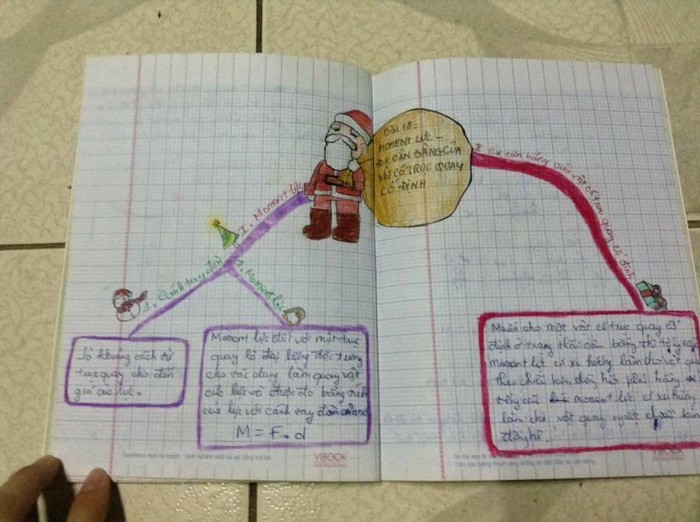 Bài 18:
MOMENT LỰC -
ĐK CÂN BẰNG CỦA
VẬT CÓ TRỤC QUAY
CỐ ĐỊNH
I. Moment lực
1. Cánh tay đòn
2. Moment lực
là khoảng cách từ
trục quay cho đến
giá của lực.
Moment lực đối với một trục
quay là đại lượng đặc trưng
cho tác dụng làm quay vật
của lực và được đo bằng tích
của lực với cánh tay đòn của nó
M = F . d
II. ĐK cân bằng của vật có trục quay cố định
Muốn cho một vật có trục quay cố
định ở trạng thái cân bằng thì tổng các
moment lực có xu hướng làm cho vật quay
theo chiều kim đồng hồ phải bằng
tổng các moment lực có xu hướng
làm cho vật quay ngược chiều kim
đồng hồ.
VIBOOK
VIBOOK